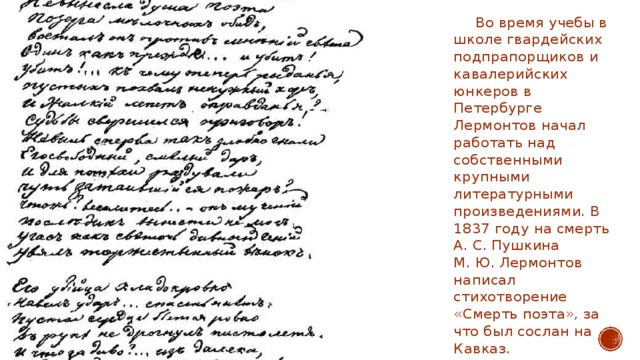 Невынесла душа поэта
Позора мѣлочныхъ обидъ,
Возсталъ онъ противъ мнѣній свѣта
Одинъ какъ прежде... и убитъ!
Убитъ!... къ чему теперь рыданья,
Пустыхъ похвалъ ненужный хоръ,
И жалкій лепетъ оправданья?
Судьбы свершился приговоръ!
Невыль сперва такъ злобно гнали
Его свободный, смѣлый даръ,
И для потѣхи раздували
Чуть затаившійся пожаръ?
Чтожъ? веселитесь... - онъ мученій
Последнихъ вынести не могъ.
Угасъ какъ светочь дивный геній
Увялъ торжественный вѣнокъ.
Его убійца хладнокровно
Навелъ ударъ... спасенья нѣтъ:
Пустое сердце бьется ровно
Въ рукѣ не дрогнулъ пистолетъ.
И что за диво?... изъ далека,
Во время учебы в
школе гвардейских
подпрапорщиков и
кавалерийских
юнкеров в
Петербурге
Лермонтов начал
работать над
собственными
крупными
литературными
произведениями. В
1837 году на смерть
А. С. Пушкина
М. Ю. Лермонтов
написал
стихотворение
«Смерть поэта», за
что был сослан на
Кавказ.